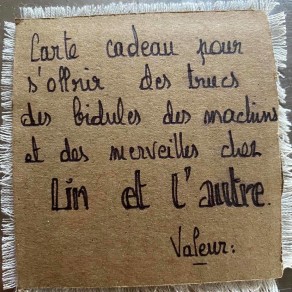 Carte cadeau pour
s'offrir des trucs
des bidules des machins
et des merveilles chez
Lin et l'autre.
Valeur: